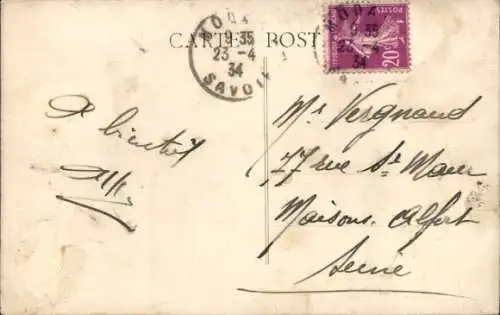 CARTE POST
MODA
9 35
23 - 4
34
SAVOI
MODA
9 35
23 - 4
34
20c
A bientôt
Mr Vergnaud
77 rue St Maur
Maisons-Alfort
Seine